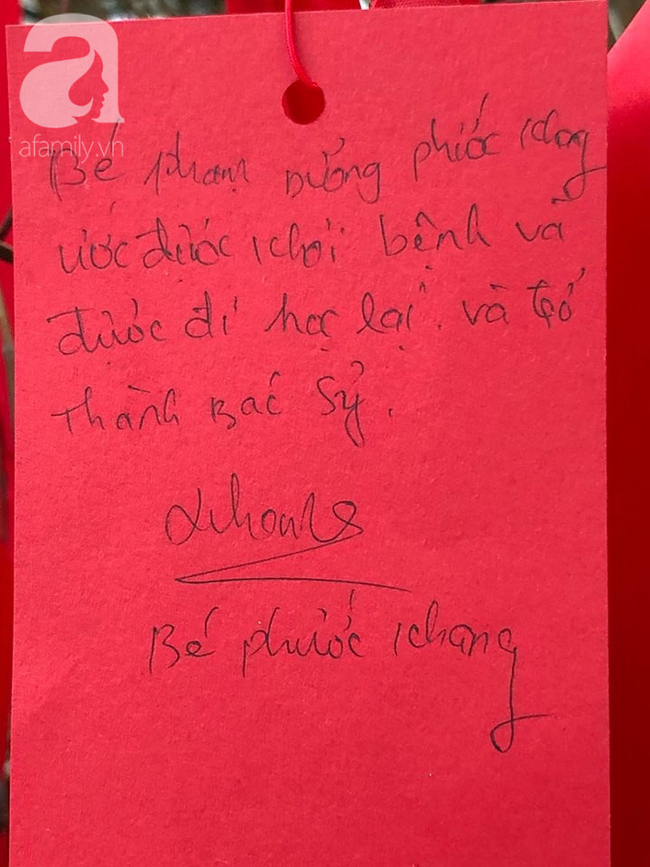 a
afamily.vn
Bé Phạm Dưỡng Phước Khang
ước được khỏi bệnh và
được đi học lại. và trở
thành Bác Sỹ.
Bé phước khang